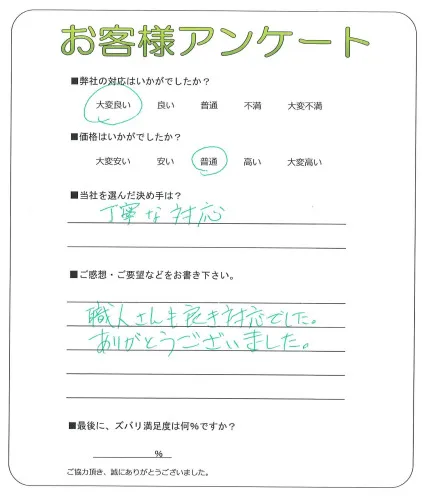 お客様アンケート
■弊社の対応はいかがでしたか?
大変良い 良い 普通 不満 大変不満
■価格はいかがでしたか?
大変安い 安い 普通 高い 大変高い
■当社を選んだ決め手は?
丁寧な対応
■ご感想・ご要望などをお書き下さい。
職人さんも良き対応でした。
ありがとうございました。
■最後に、ズバリ満足度は何%ですか?
%
ご協力頂き、誠にありがとうございました。